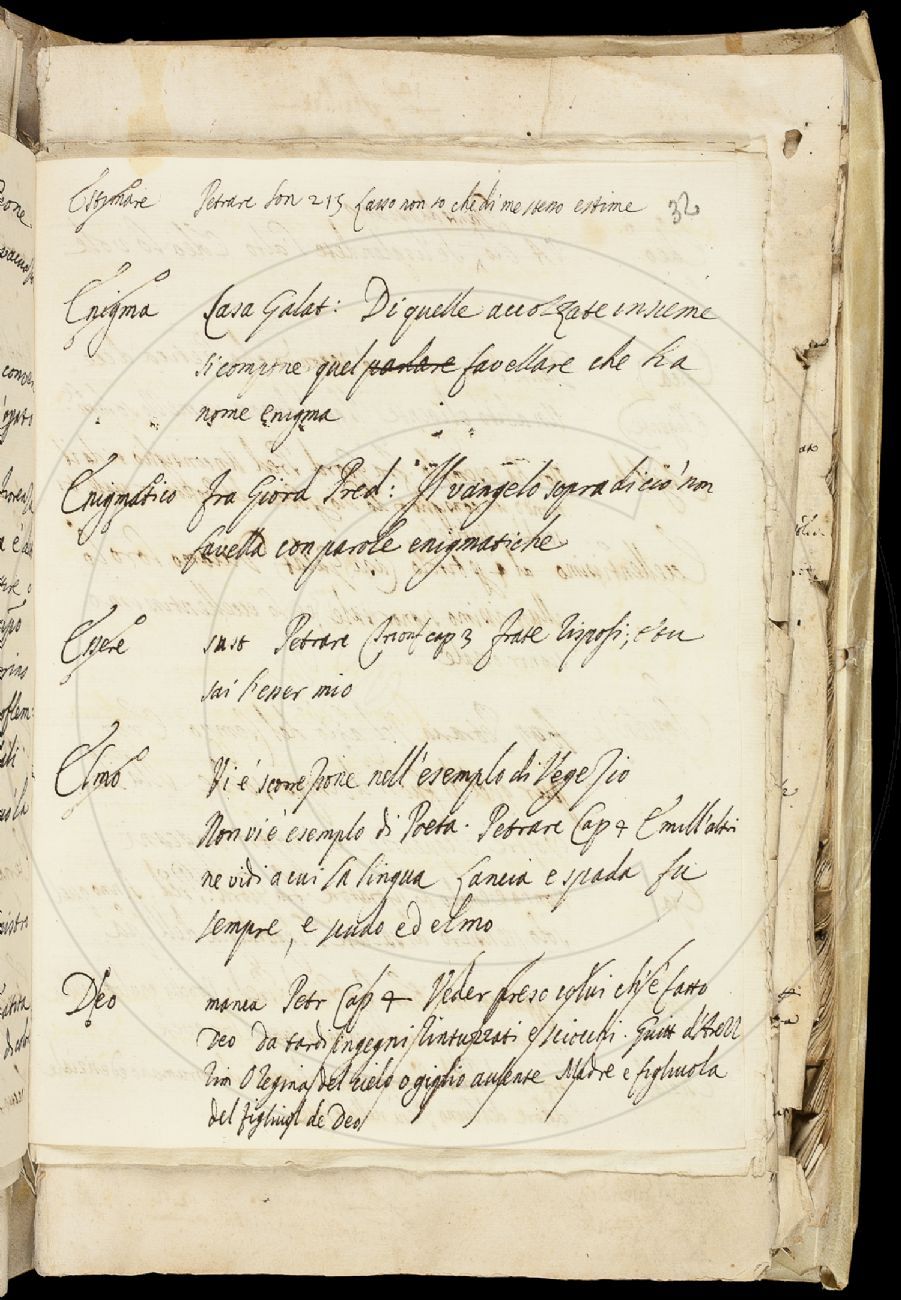 Estimare Petrarc Son 215 Lasso non so che di me steno estime 32
Enigma Casa Galat: Di quelle accozzate insieme
si compone quel parlare favellare che ha
nome enigma
Enigmatico fra Giord Pred: Il vangelo sopra di ciò non
favella con parole enigmatiche
Essere sust Petrarc Trionf cap 3 frate risposi, e tu
sai l'esser mio
Elmo Vi è scorrezione nell'esemplo di Vegezio
Non vi è esemplo di Poeta. Petrarc Cap 4 E mill'altri
ne vidi a cui la lingua Lancia e spada fu
sempre, e scudo ed elmo
Deo manca Petr Cap 4 Veder preso colui ch'è fatto
Deo da tardi ingegni rintuzzati e sciocchi. Guitt d'Arezz
Rim O Regina del cielo o giglio aulente Madre e figliuola
del figliuol de Deo